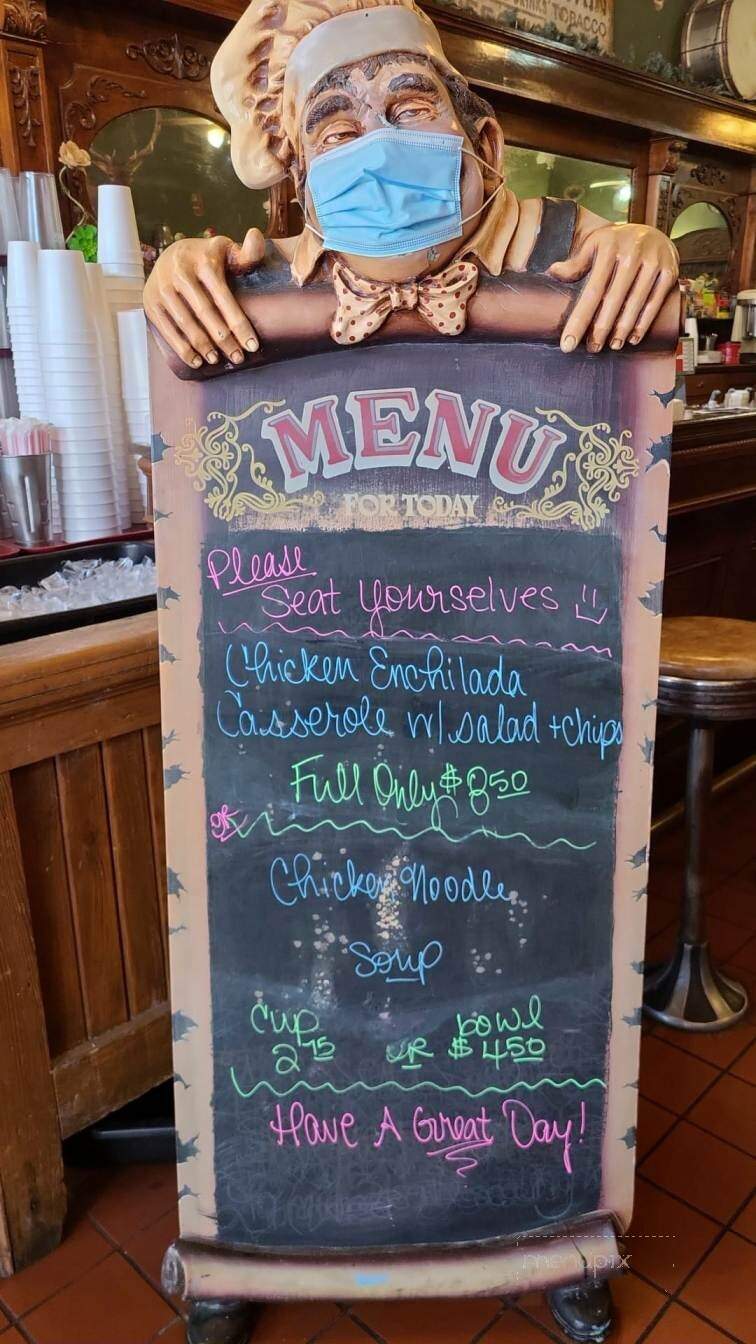 TOBACCO
MENU
FOR TODAY
Please
Seat Yourselves
Chicken Enchilada
Casserole w/salad + chips
Full Only $8 50
or
Chicken Noodle
Soup
Cup bowl
2 75 OR $4 50
Have A Great Day!
menupix